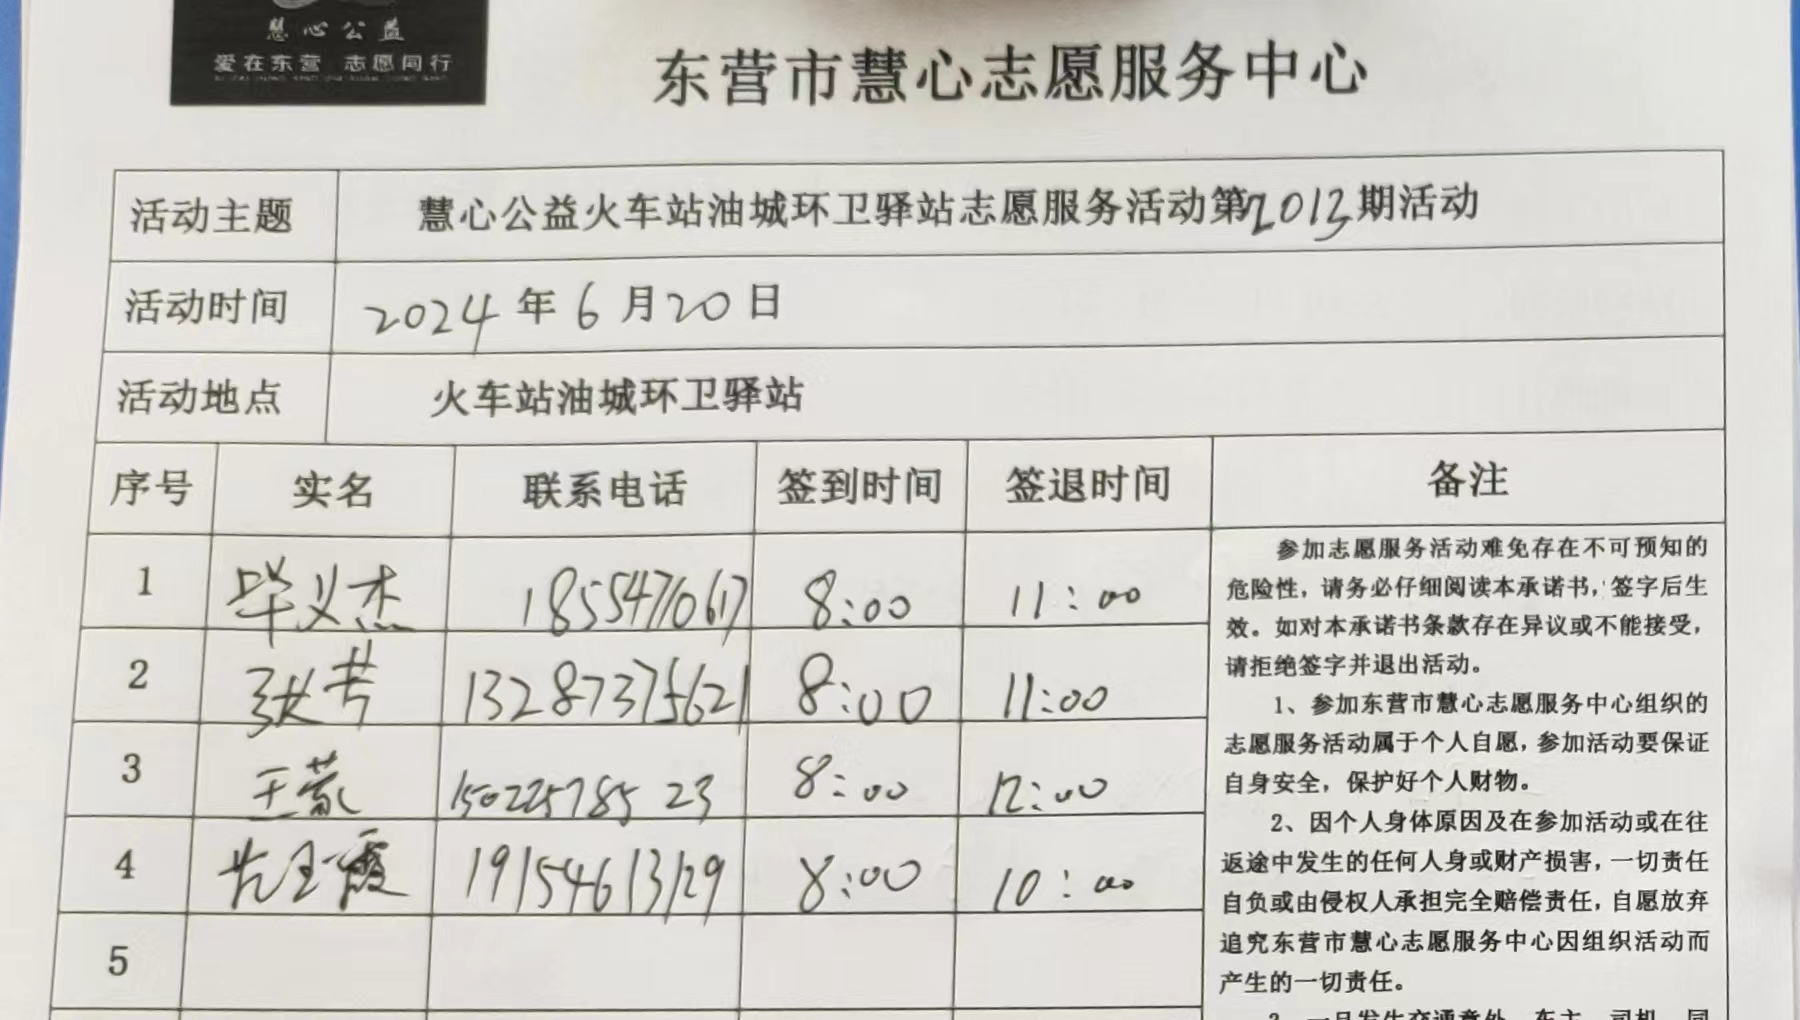 慧心公益
爱在东营 志愿同行
东营市慧心志愿服务中心
活动主题 慧心公益火车站油城环卫驿站志愿服务活动第2013期活动
活动时间 2024年6月20日
活动地点 火车站油城环卫驿站
序号 实名 联系电话 签到时间 签退时间 备注
1 毕义杰 18554710617 8:00 11:00
2 张芳 13287375621 8:00 11:00
3 王蒙 15022578523 8:00 12:00
4 玉霞 19154613129 8:00 10:00
5
参加志愿服务活动难免存在不可预知的
危险性，请务必仔细阅读本承诺书，签字后生
效。如对本承诺书条款存在异议或不能接受，
请拒绝签字并退出活动。
1、参加东营市慧心志愿服务中心组织的
志愿服务活动属于个人自愿，参加活动要保证
自身安全，保护好个人财物。
2、因个人身体原因及在参加活动或在往
返途中发生的任何人身或财产损害，一切责任
自负或由侵权人承担完全赔偿责任，自愿放弃
追究东营市慧心志愿服务中心因组织活动而
产生的一切责任。
3、一旦发生交通意外，车主、司机、同